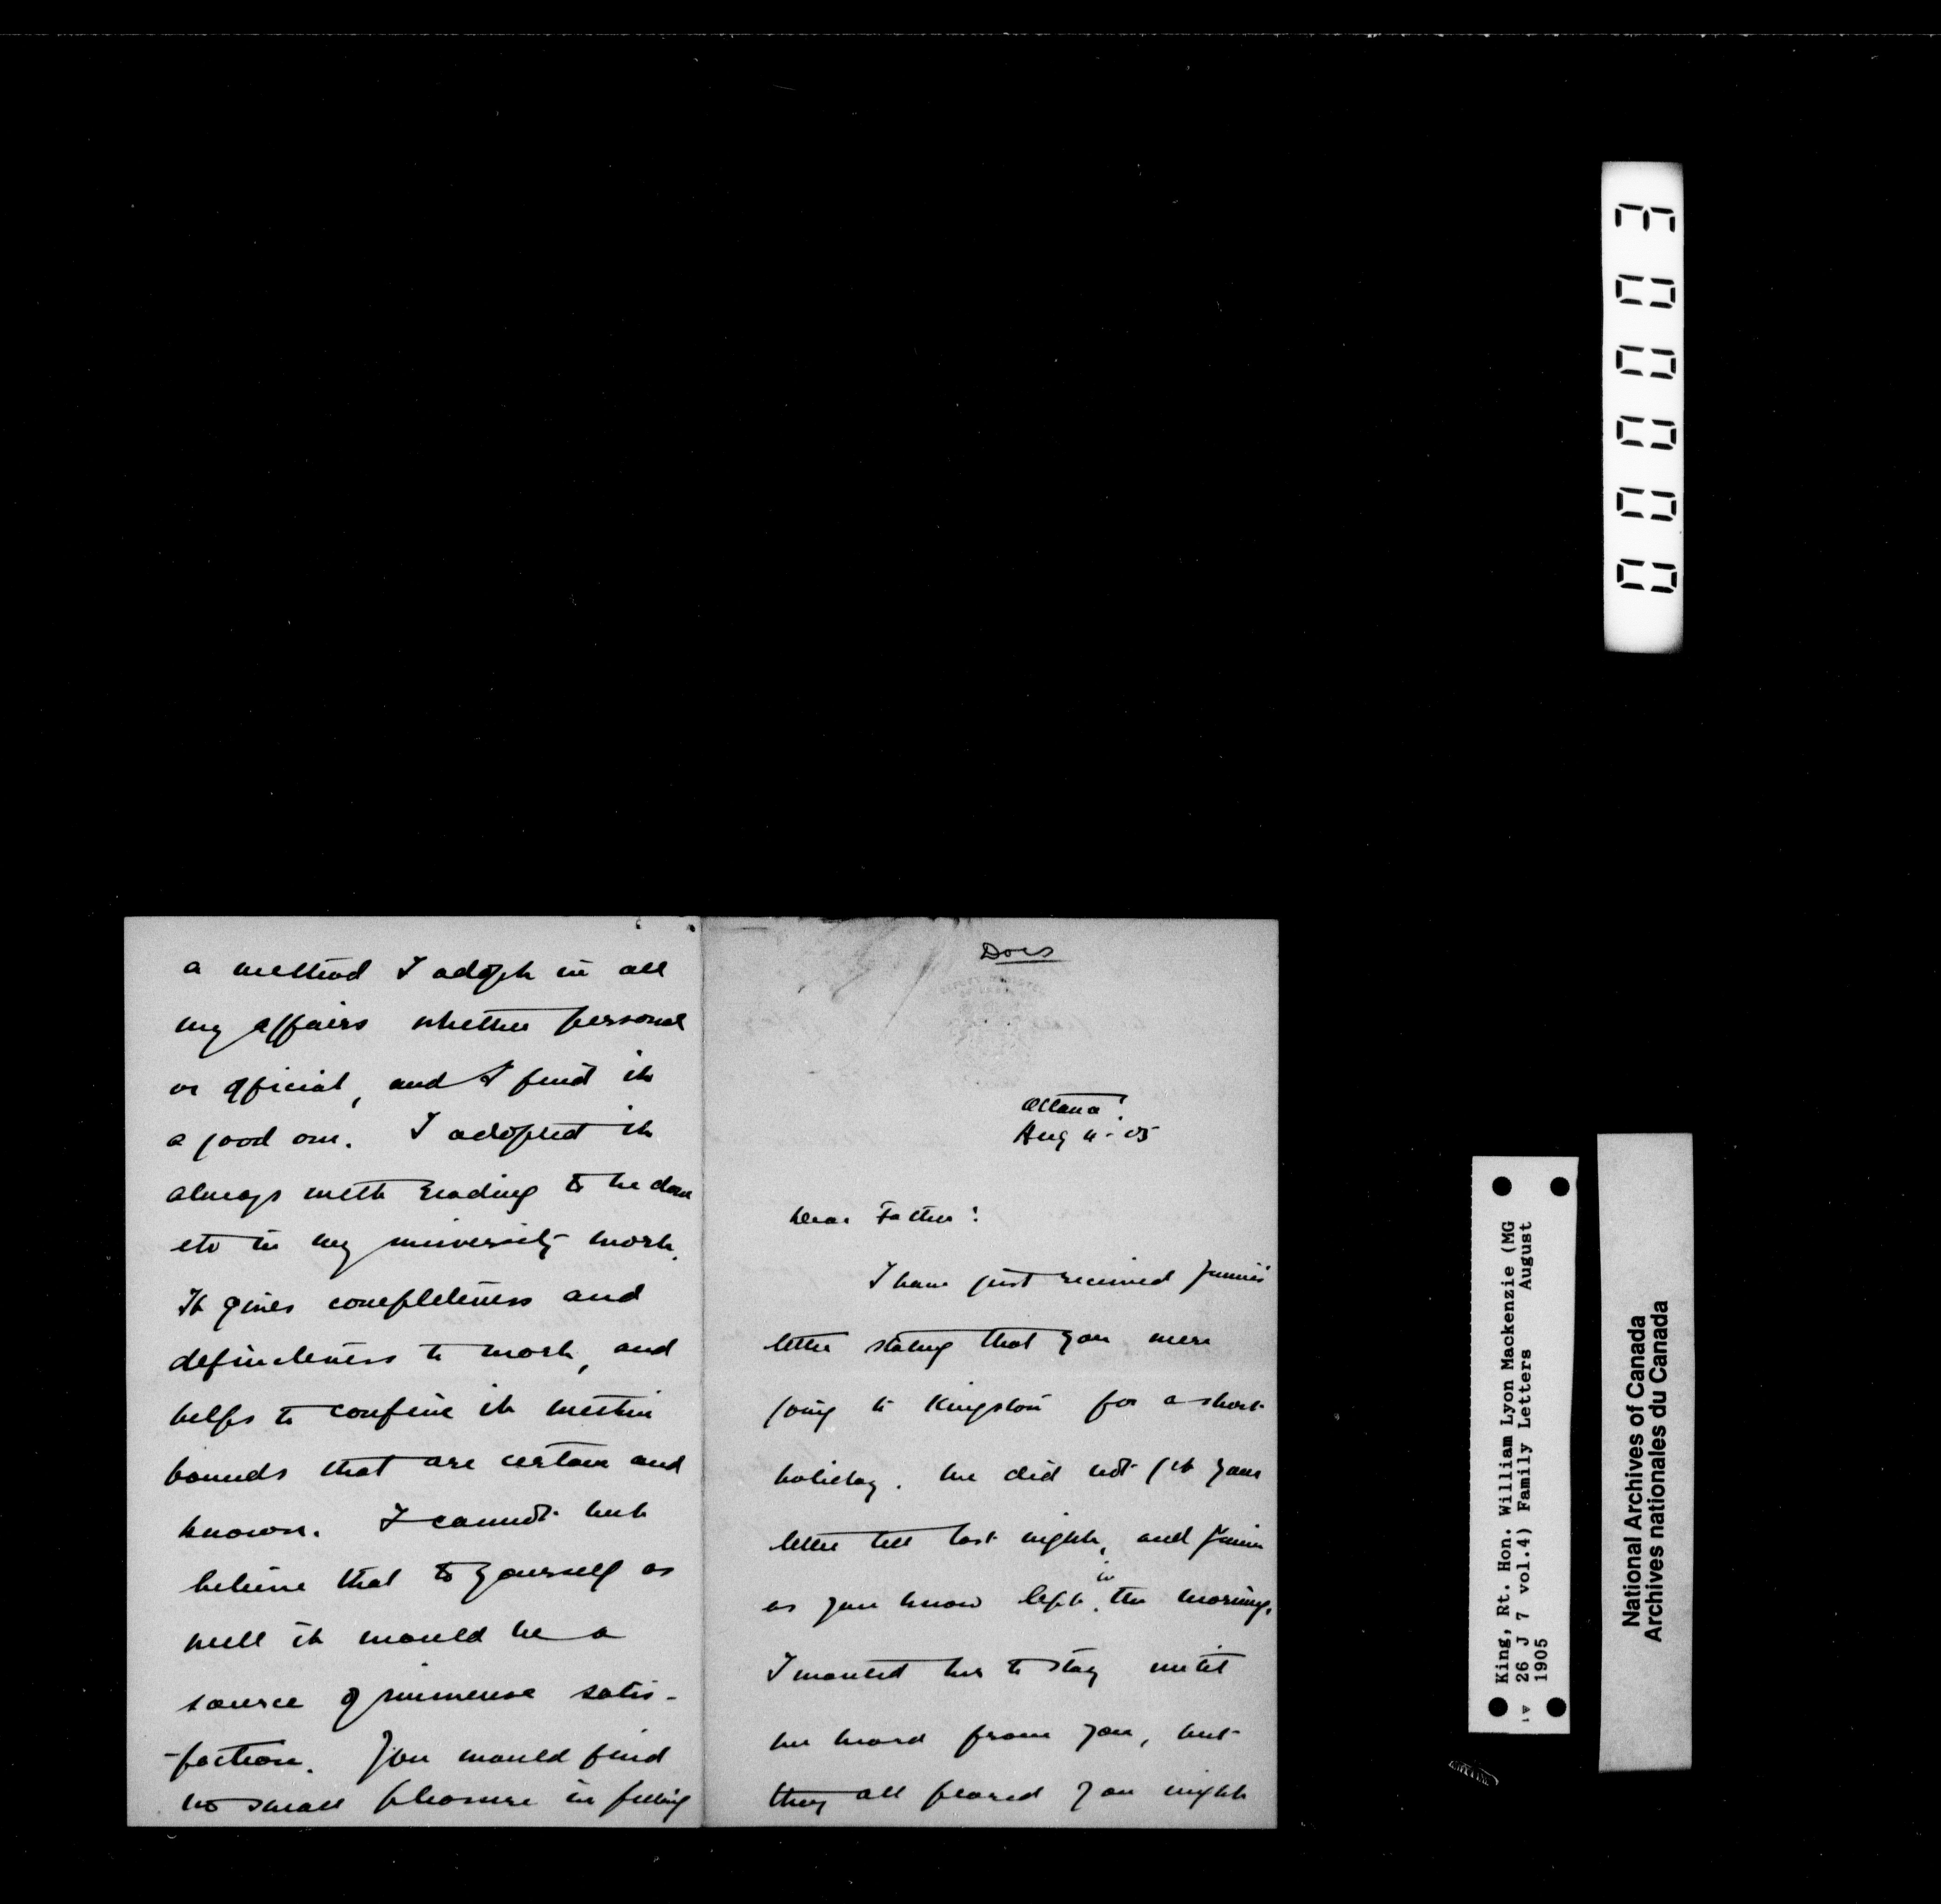 a method I adopt in all
my affairs whether personal
or official, and I find it
a good one. I adopted it
always with reading to be done
etc in my university work.
It gives completeness and
definiteness to work, and
helps to confine it within
bounds that are certain and
known. I cannot but
believe that to yourself as
well it would be a
source of immense satis-
-faction. You would find
no small pleasure in feeling
Docs
Ottawa!
Aug 11 - 05
Dear Father!
I have just received Jennie's
letter stating that you were
going to Kingston for a short
holiday. We did not get your
letter till last night, and Jennie
as you know left in the morning.
I wanted her to stay until
we heard from you, but
they all feared you might
King, Rt. Hon. William Lyon Mackenzie (MG
26 J 7 vol.4) Family Letters August
1905
National Archives of Canada
Archives nationales du Canada